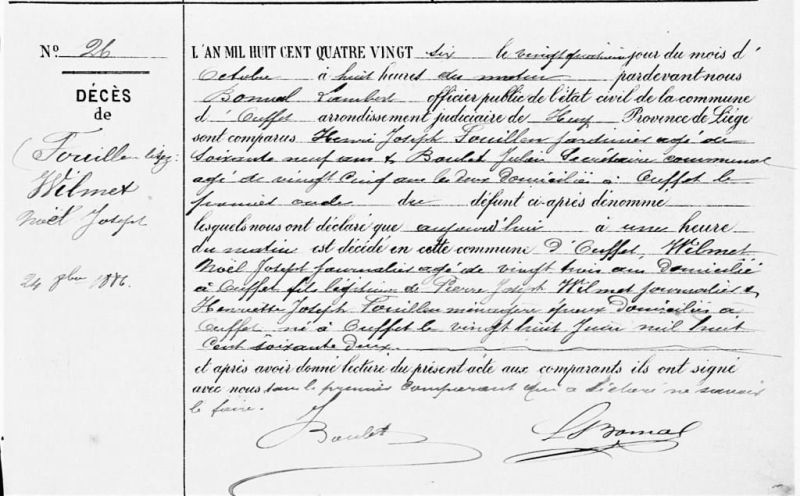 N° 26
DÉCÈS
de
(Fouillen lisez:
Wilmet
Noël Joseph
24 8bre 1886.
L'AN MIL HUIT CENT QUATRE VINGT six le vingt quatrième jour du mois d'
Octobre à huit heures du matin pardevant-nous
Bomal Lambert officier public de l'état civil de la commune
d' Ouffet arrondissement judiciaire de Huy Province de Liège
sont comparus Henri Joseph Fouillen jardinier agé de
soixante neuf ans & Boulet Julien Secrétaire communal
agé de vingt cinq ans les deux domiciliés à Ouffet le
premier oncle du défunt ci-après dénommé
lesquels nous ont déclaré que aujourd'hui à une heure
du matin est décédé en cette commune d'Ouffet, Wilmet
Noël Joseph journalier agé de vingt trois ans domicilié
à Ouffet fils légitime de Pierre Joseph Wilmet journalier &
Henriette Joseph Fouillen ménagère époux domiciliés à
Ouffet né à Ouffet le vingt huit Juin mil huit
cent soixante deux.
et après avoir donné lecture du présent acte aux comparants ils ont signé
avec nous sauf le premier comparant qui a déclaré ne savoir
le faire.
Boulet LBomal